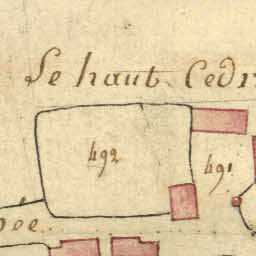 Le haut Cedr
492
491
ée